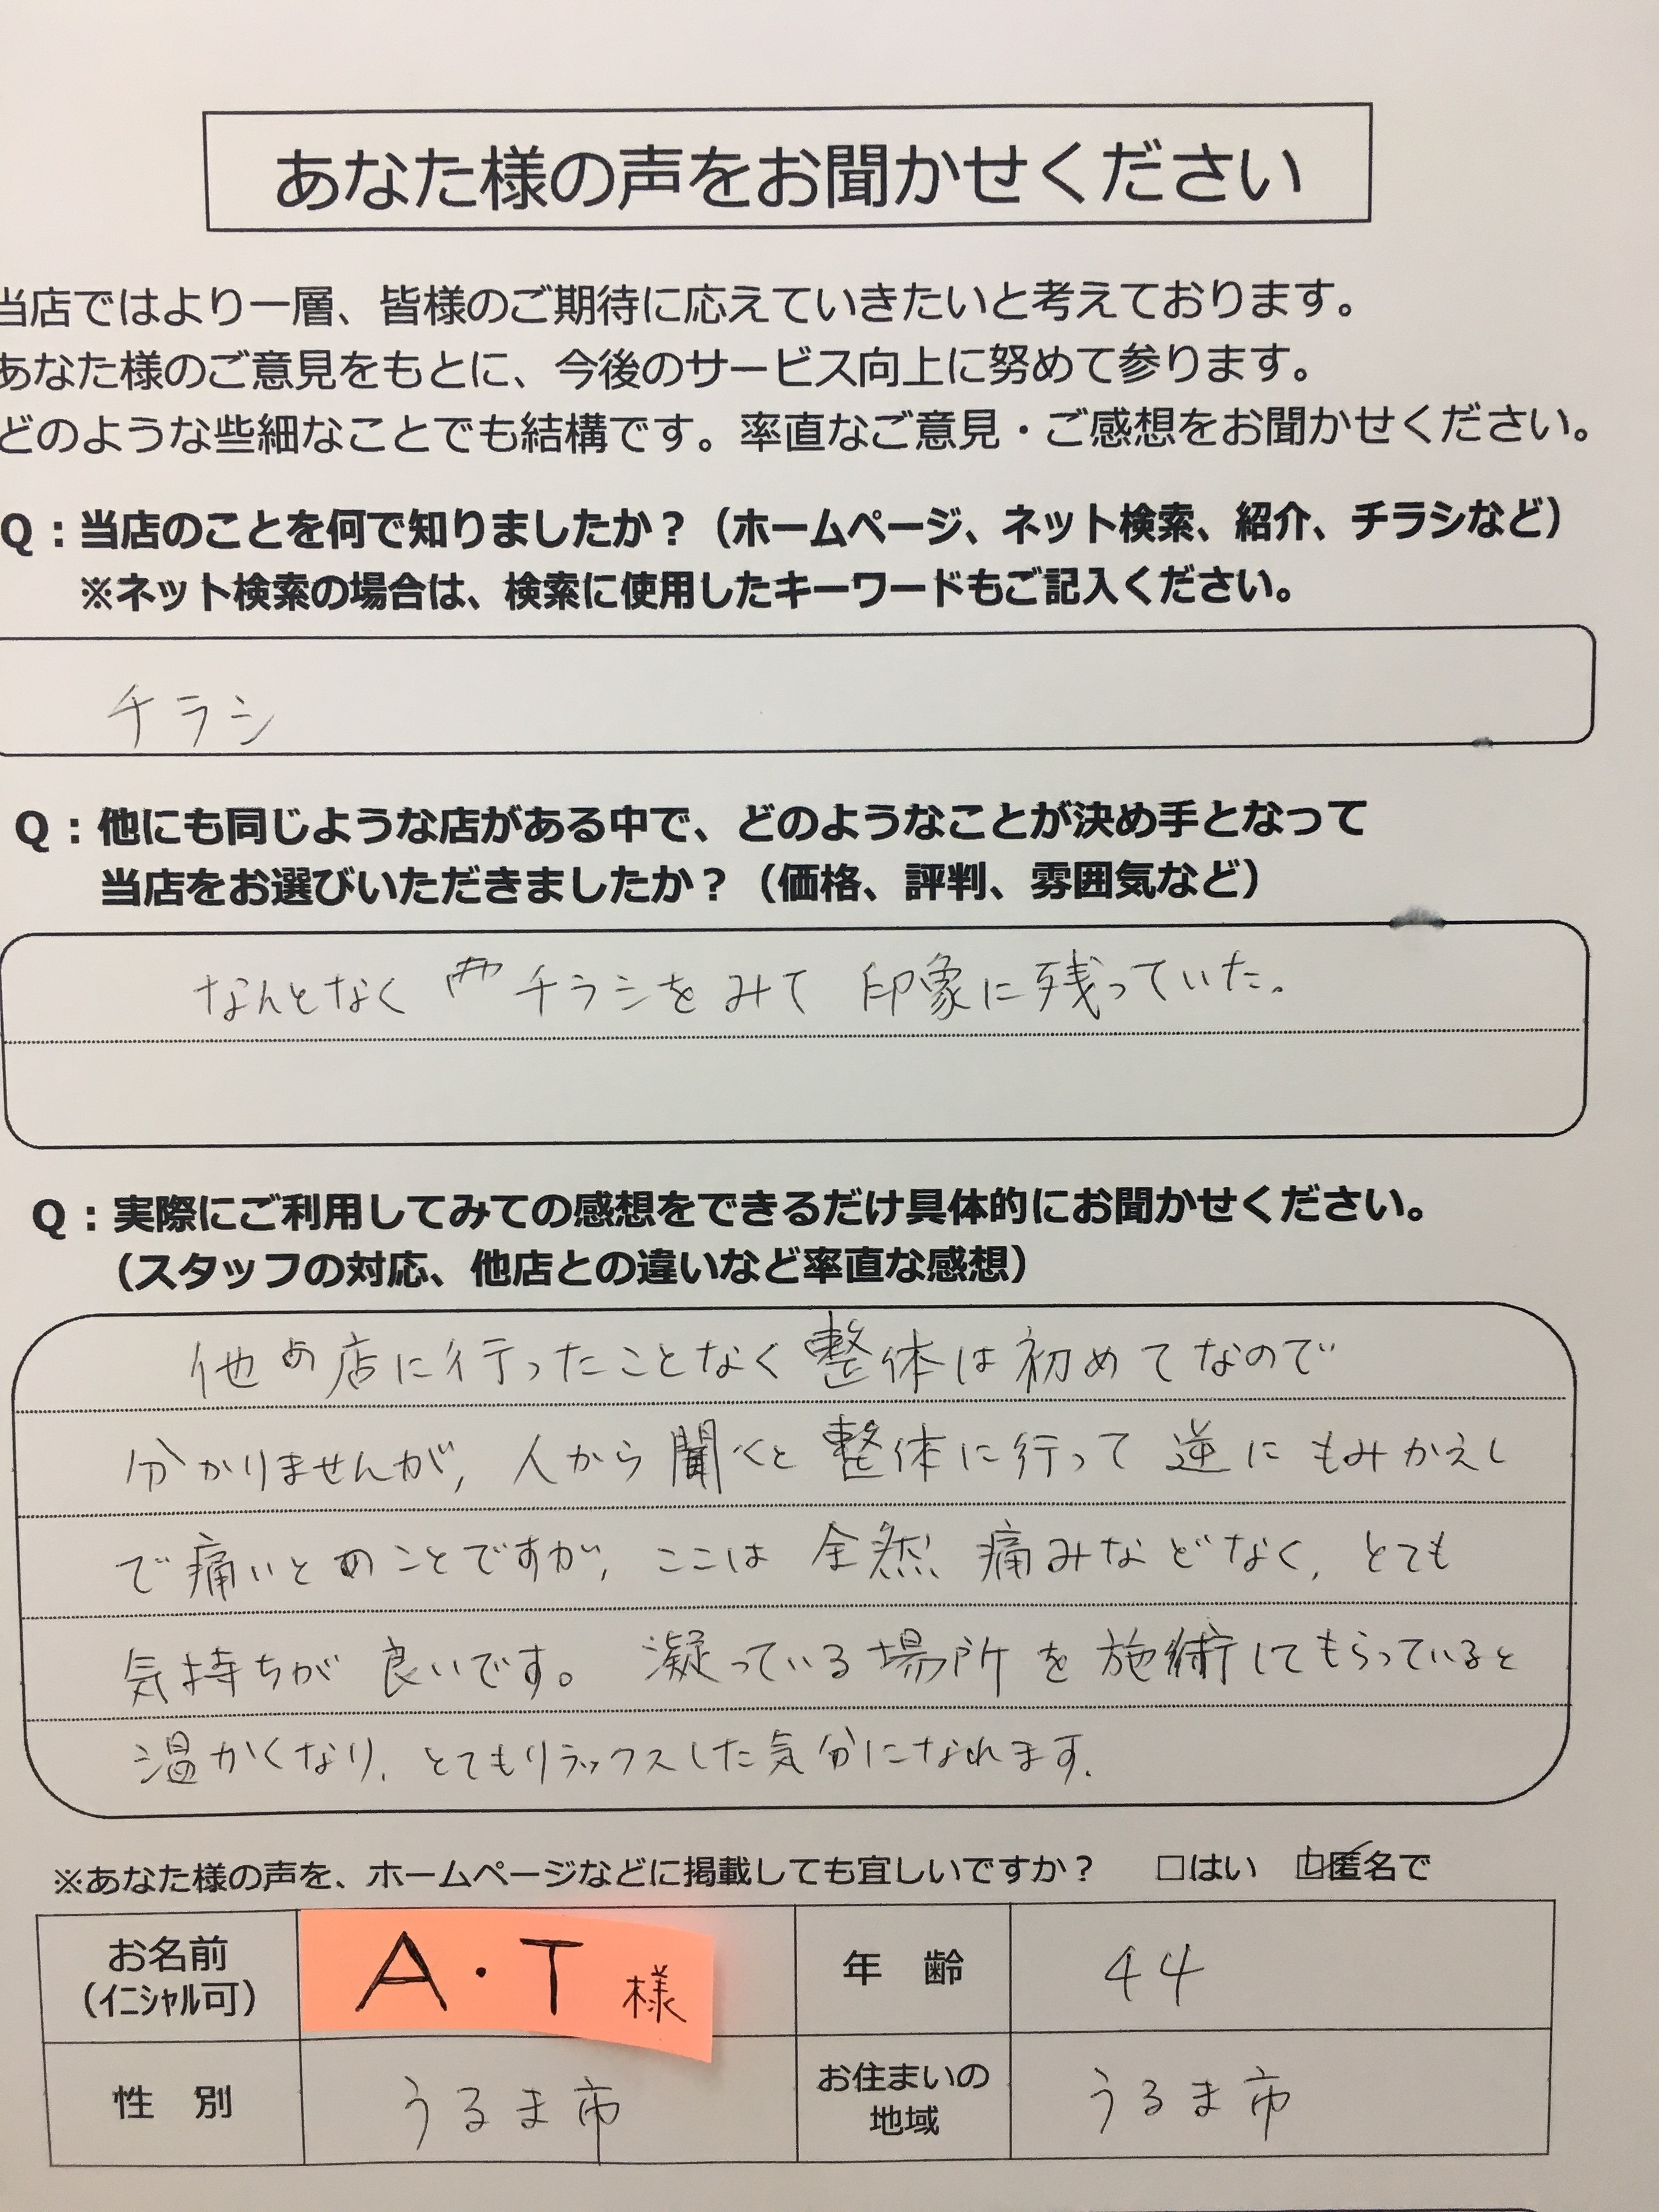 あなた様の声をお聞かせください
当店ではより一層、皆様のご期待に応えていきたいと考えております。
あなた様のご意見をもとに、今後のサービス向上に努めて参ります。
どのような些細なことでも結構です。率直なご意見・ご感想をお聞かせください。
Q：当店のことを何で知りましたか？（ホームページ、ネット検索、紹介、チラシなど）
※ネット検索の場合は、検索に使用したキーワードもご記入ください。
チラシ
Q：他にも同じような店がある中で、どのようなことが決め手となって
当店をお選びいただきましたか？（価格、評判、雰囲気など）
なんとなく チラシを みて 印象に残っていた。
Q：実際にご利用してみての感想をできるだけ具体的にお聞かせください。
（スタッフの対応、他店との違いなど率直な感想）
他の店に行ったことなく整体は初めてなので
分かりませんが、人から聞くと整体に行って逆にもみかえし
で痛いとのことですが、ここは全然痛みなどなく、とても
気持ちが良いです。凝っている場所を施術してもらっていると
温かくなり、とてもリラックスした気分になれます。
※あなた様の声を、ホームページなどに掲載しても宜しいですか？　□はい　☑匿名で
お名前 A・T 様 年　齢 44
（イニシャル可）
性　別 うるま市 お住まいの地域 うるま市